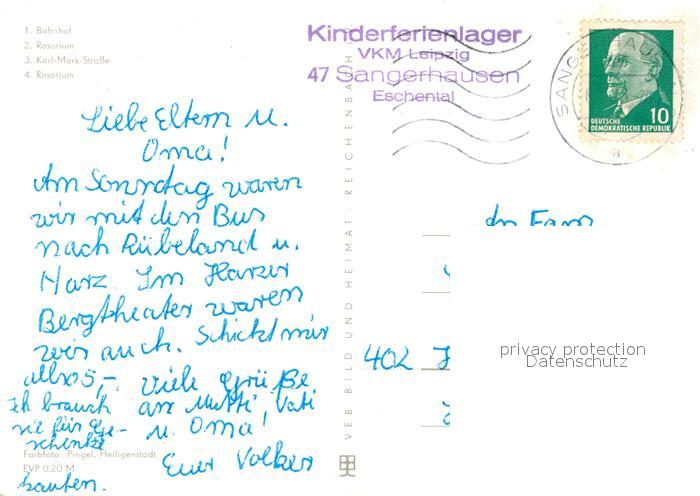 1. Bahnhof
2. Rosarium
3. Karl-Marx-Straße
4. Rosarium
Kinderferienlager
VKM Leipzig
47 Sangerhausen
Eschental
SANGERHAU
a
10
DEUTSCHE
DEMOKRATISCHE REPUBLIK
Liebe Eltern u.
Oma!
Am Sonntag waren
wir mit den Bus
nach Rübeland u.
Harz. Im Harzer
Bergtheater waren
wir auch. Schickt mir
5,- Viele Grüße
Ich brauch an Mutti, Vati
sie für Ge- u. Oma!
schenke
Euer Volker
kaufen.
Farbfoto: Pingel, Heiligenstadt
EVP 0,20 M
VEB BILD UND HEIMAT REICHENBACH
An Fam
402
privacy protection
Datenschutz